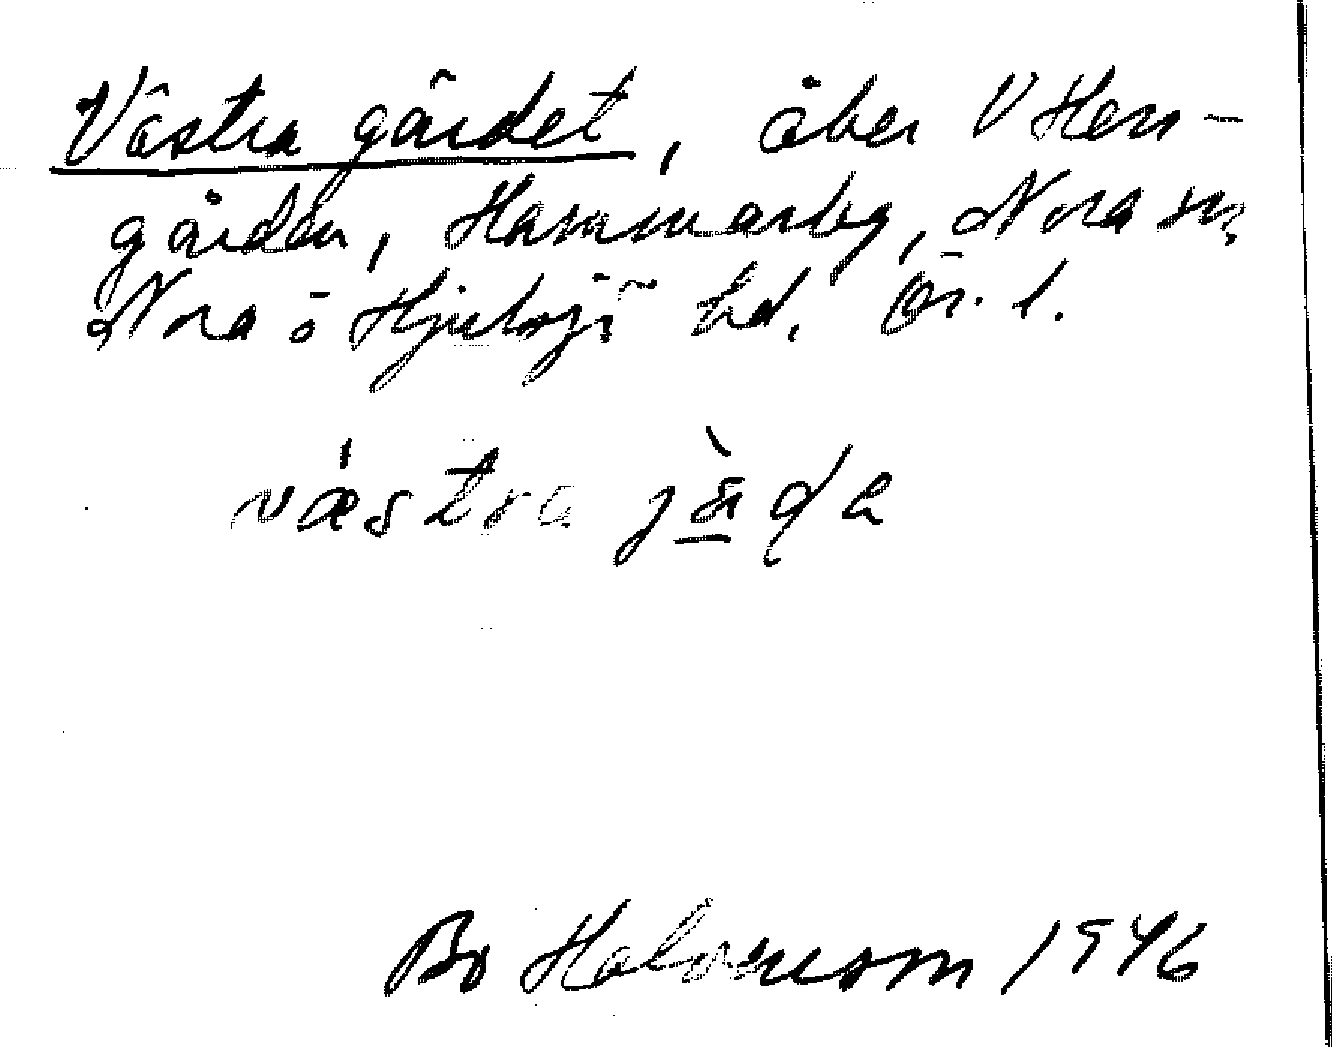 Västra gärdet, åker V Herr-
gården, Hammarby, Nora sn,
Nora o Hjulsjö hd. Ör. l.
væstra jäḍa
Bo Halvarson 1946